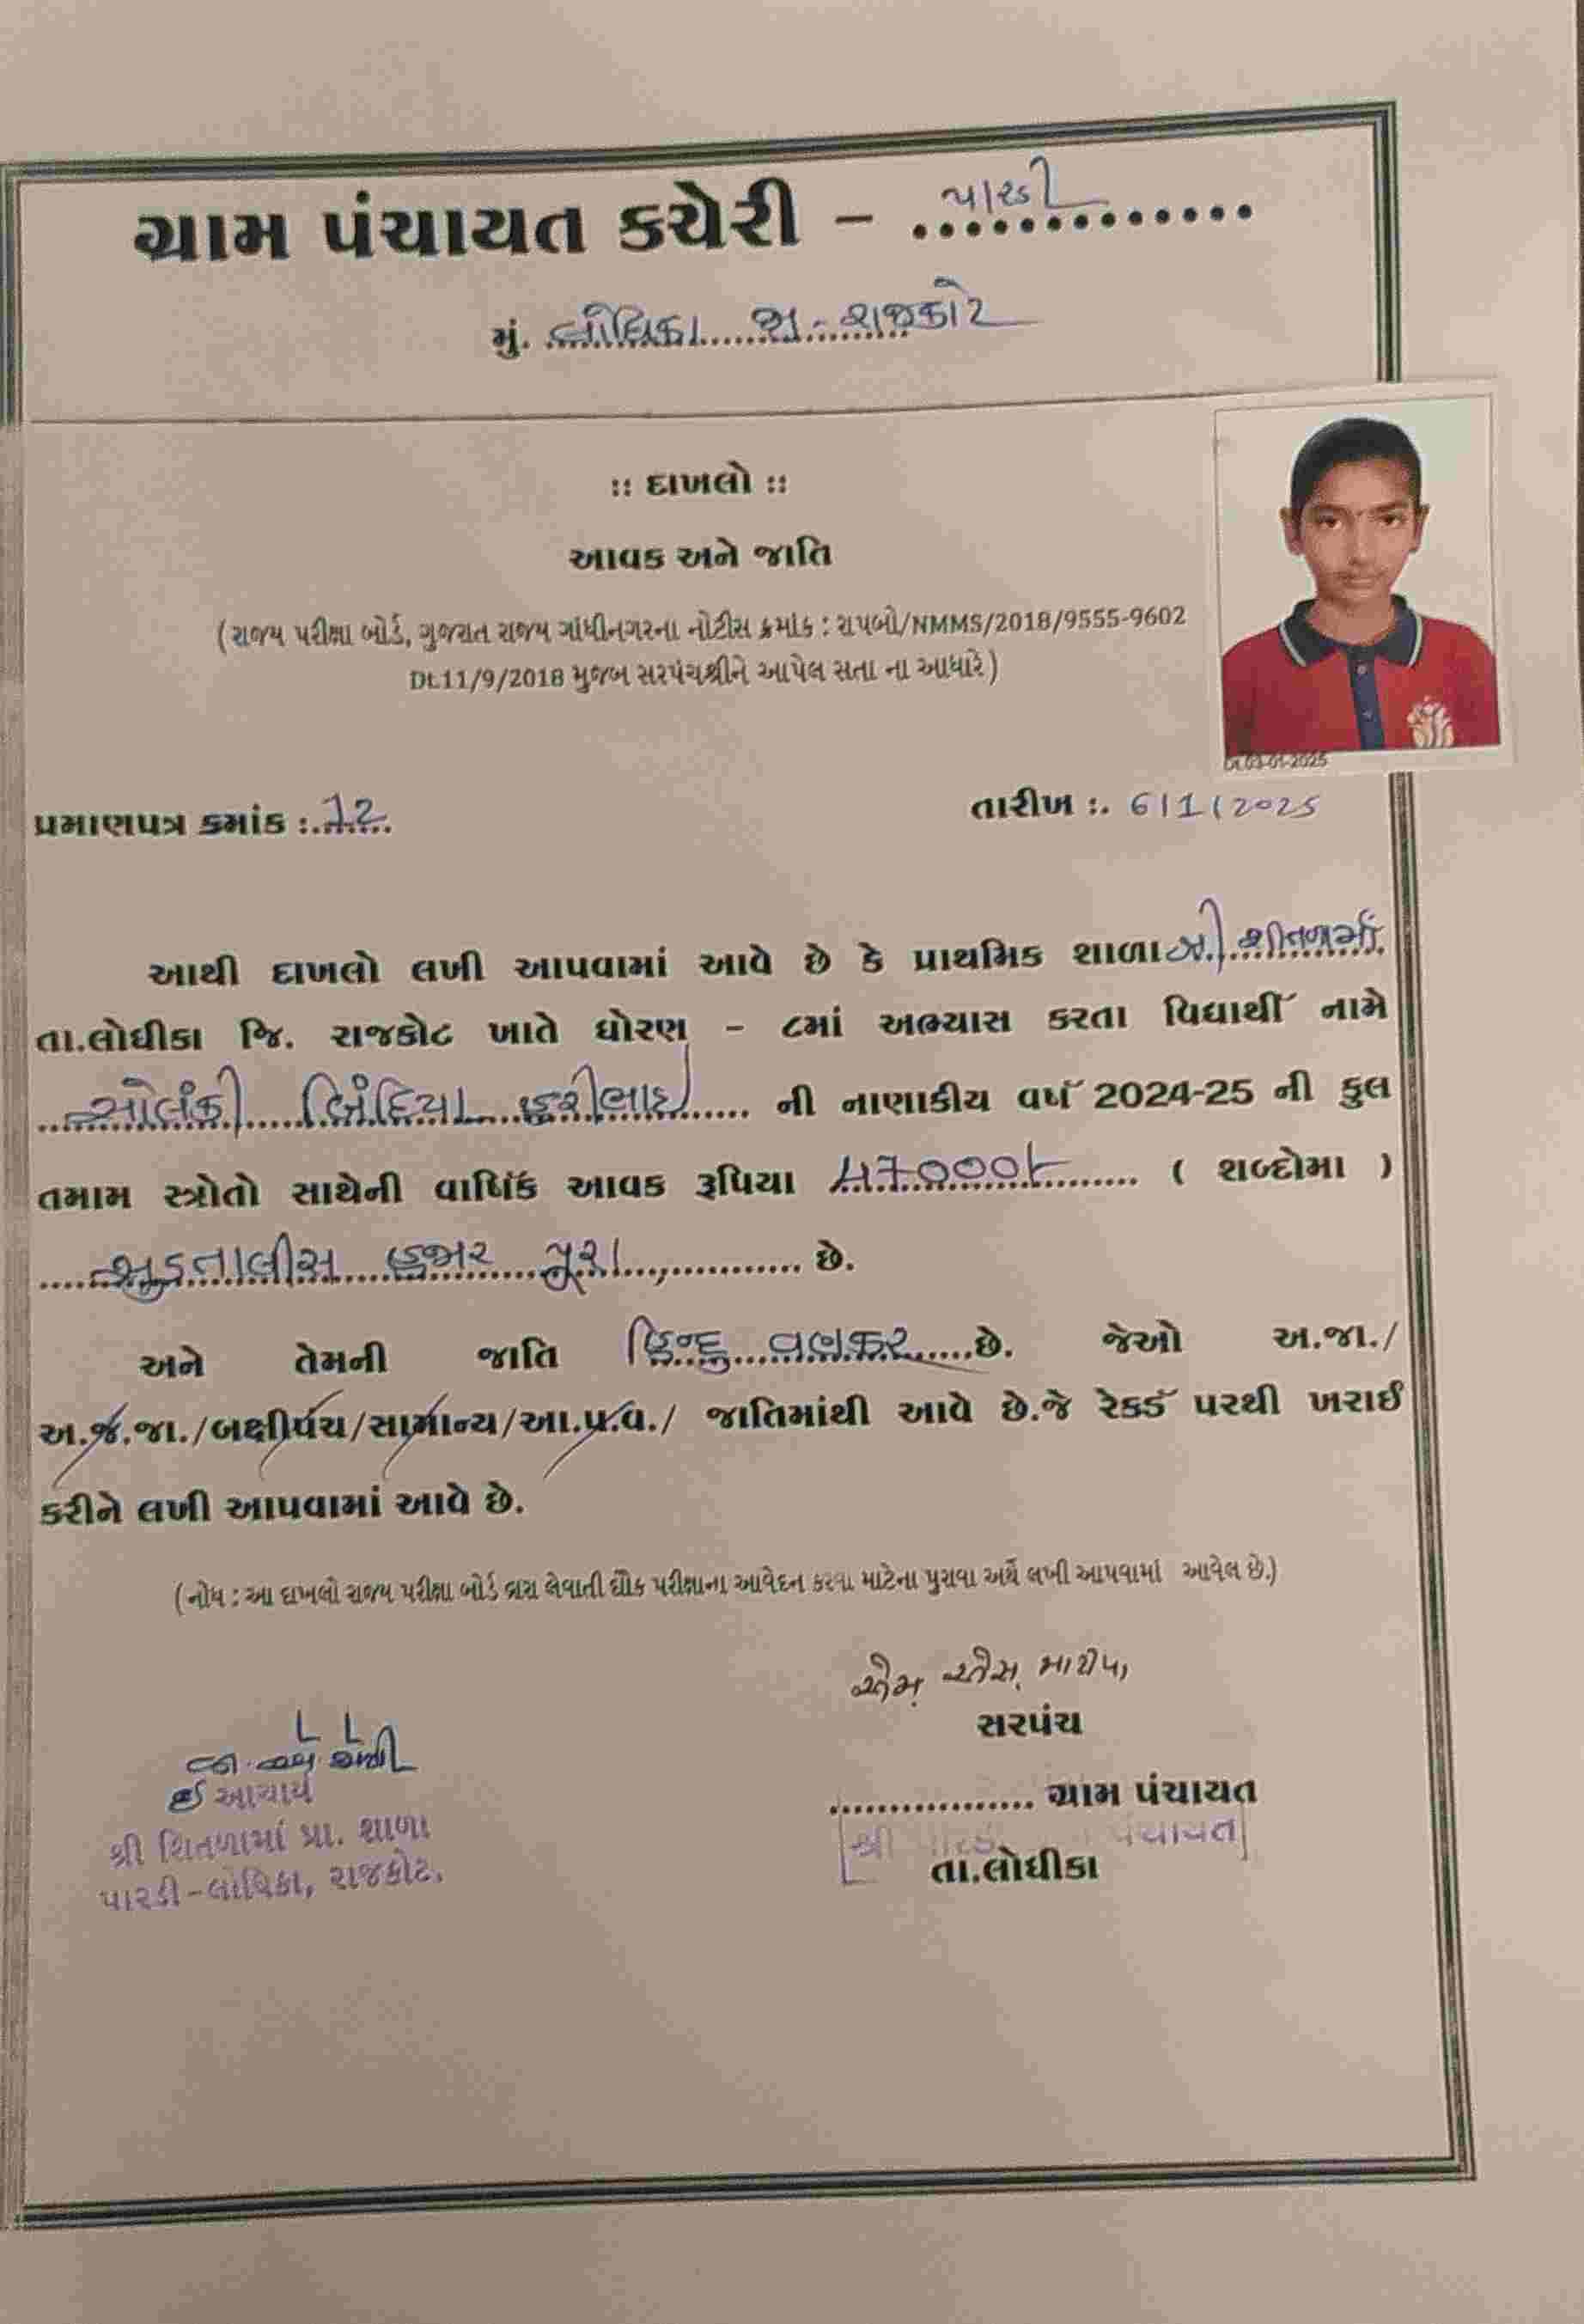 ગ્રામ પંચાયત કચેરી – પારડી
મું. લોધિકા જી.-રાજકોટ
:: દાખલો ::
આવક અને જાતિ
(રાજ્ય પરીક્ષા બોર્ડ, ગુજરાત રાજ્ય ગાંધીનગરના નોટીસ ક્રમાંક : રાપબો/NMMS/2018/9555-9602
Dt.11/9/2018 મુજબ સરપંચશ્રીને આપેલ સતા ના આધારે)
Dt.03-01-2025
પ્રમાણપત્ર ક્રમાંક :.72
તારીખ :. 6/1/2025
આથી દાખલો લખી આપવામાં આવે છે કે પ્રાથમિક શાળા શ્રી. શીતળામાં
તા.લોધીકા જિ. રાજકોટ ખાતે ધોરણ – ૮માં અભ્યાસ કરતા વિદ્યાર્થી નામે
સોલંકી બિંદિયા હરીભાઇ ની નાણાકીય વર્ષ 2024-25 ની કુલ
તમામ સ્ત્રોતો સાથેની વાર્ષિક આવક રૂપિયા 47000/- ( શબ્દોમા )
સુડતાલીસ હજાર પૂરા છે.
અને તેમની જાતિ હિન્દુ વણકર છે. જેઓ અ.જા./
અ.જ.જા./બક્ષીપંચ/સામાન્ય/આ.પ્ર.વ./ જાતિમાંથી આવે છે.જે રેકર્ડ પરથી ખરાઈ
કરીને લખી આપવામાં આવે છે.
(નોધ : આ દાખલો રાજ્ય પરીક્ષા બોર્ડ દ્વારા લેવાતી શૈક્ષ પરીક્ષાના આવેદન કરવા માટેના પુરાવા અર્થે લખી આપવામાં આવેલ છે.)
એમ. એસ. મારીપા
સરપંચ
ઈ આચાર્ય
ગ્રામ પંચાયત
શ્રી શિતળામાં પ્રા. શાળા
શ્રી પારડી પંચાયત
પારડી-લોધિકા, રાજકોટ.
તા.લોધીકા